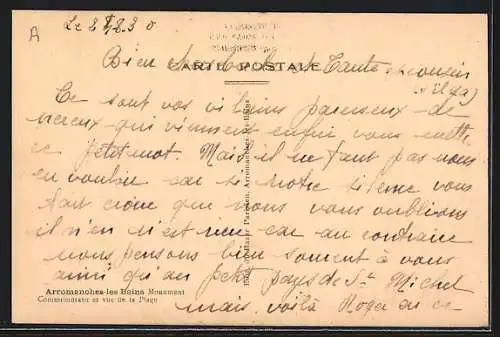 A
Le 8/8.30
Bien chers Tante et cousin
CARTE POSTALE
Ce sont vos vilains paresseux de
neveux qui viennent enfin vous mettre
ce petit mot. Mais il ne faut pas nous
en vouloir car si notre silence vous
faut croire que nous vous oublions
il n'en n'est rien car au contraire
nous pensons bien souvent à vous
ainsi qu'au petit pays de St Michel
mais voilà Roger
Arromanches-les-Bains Monument
Commémoratif et vue de la Plage
Parisien, Arromanches-les-Bains